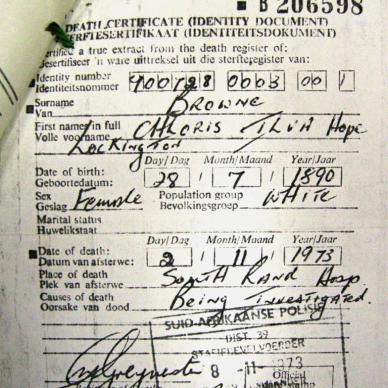 B 206598
DEATH CERTIFICATE (IDENTITY DOCUMENT)
STERFTESERTIFIKAAT (IDENTITEITSDOKUMENT)
Certified a true extract from the death register of:
Gesertifiseer 'n ware uittreksel uit die sterfteregister van:
Identity number
Identiteitsnommer 900728 0003 00 1
Surname
Van BROWNE
First names in full
Volle voorname CHLORIS Hope
Lockington
Day/Dag Month/Maand Year/Jaar
Date of birth:
Geboortedatum: 28 7 1890
Sex
Geslag Female
Population group
Bevolkingsgroep WHITE
Marital status
Huwelikstaat
Day/Dag Month/Maand Year/Jaar
Date of death:
Datum van afsterwe: 2 11 1973
Place of death
Plek van afsterwe South Rand Hosp
Causes of death
Oorsake van dood Being Investigated.
SUID-AFRIKAANSE POLISIE
DIST. 39
STASIEBEVELVOERDER
8 -11- 1973
Official